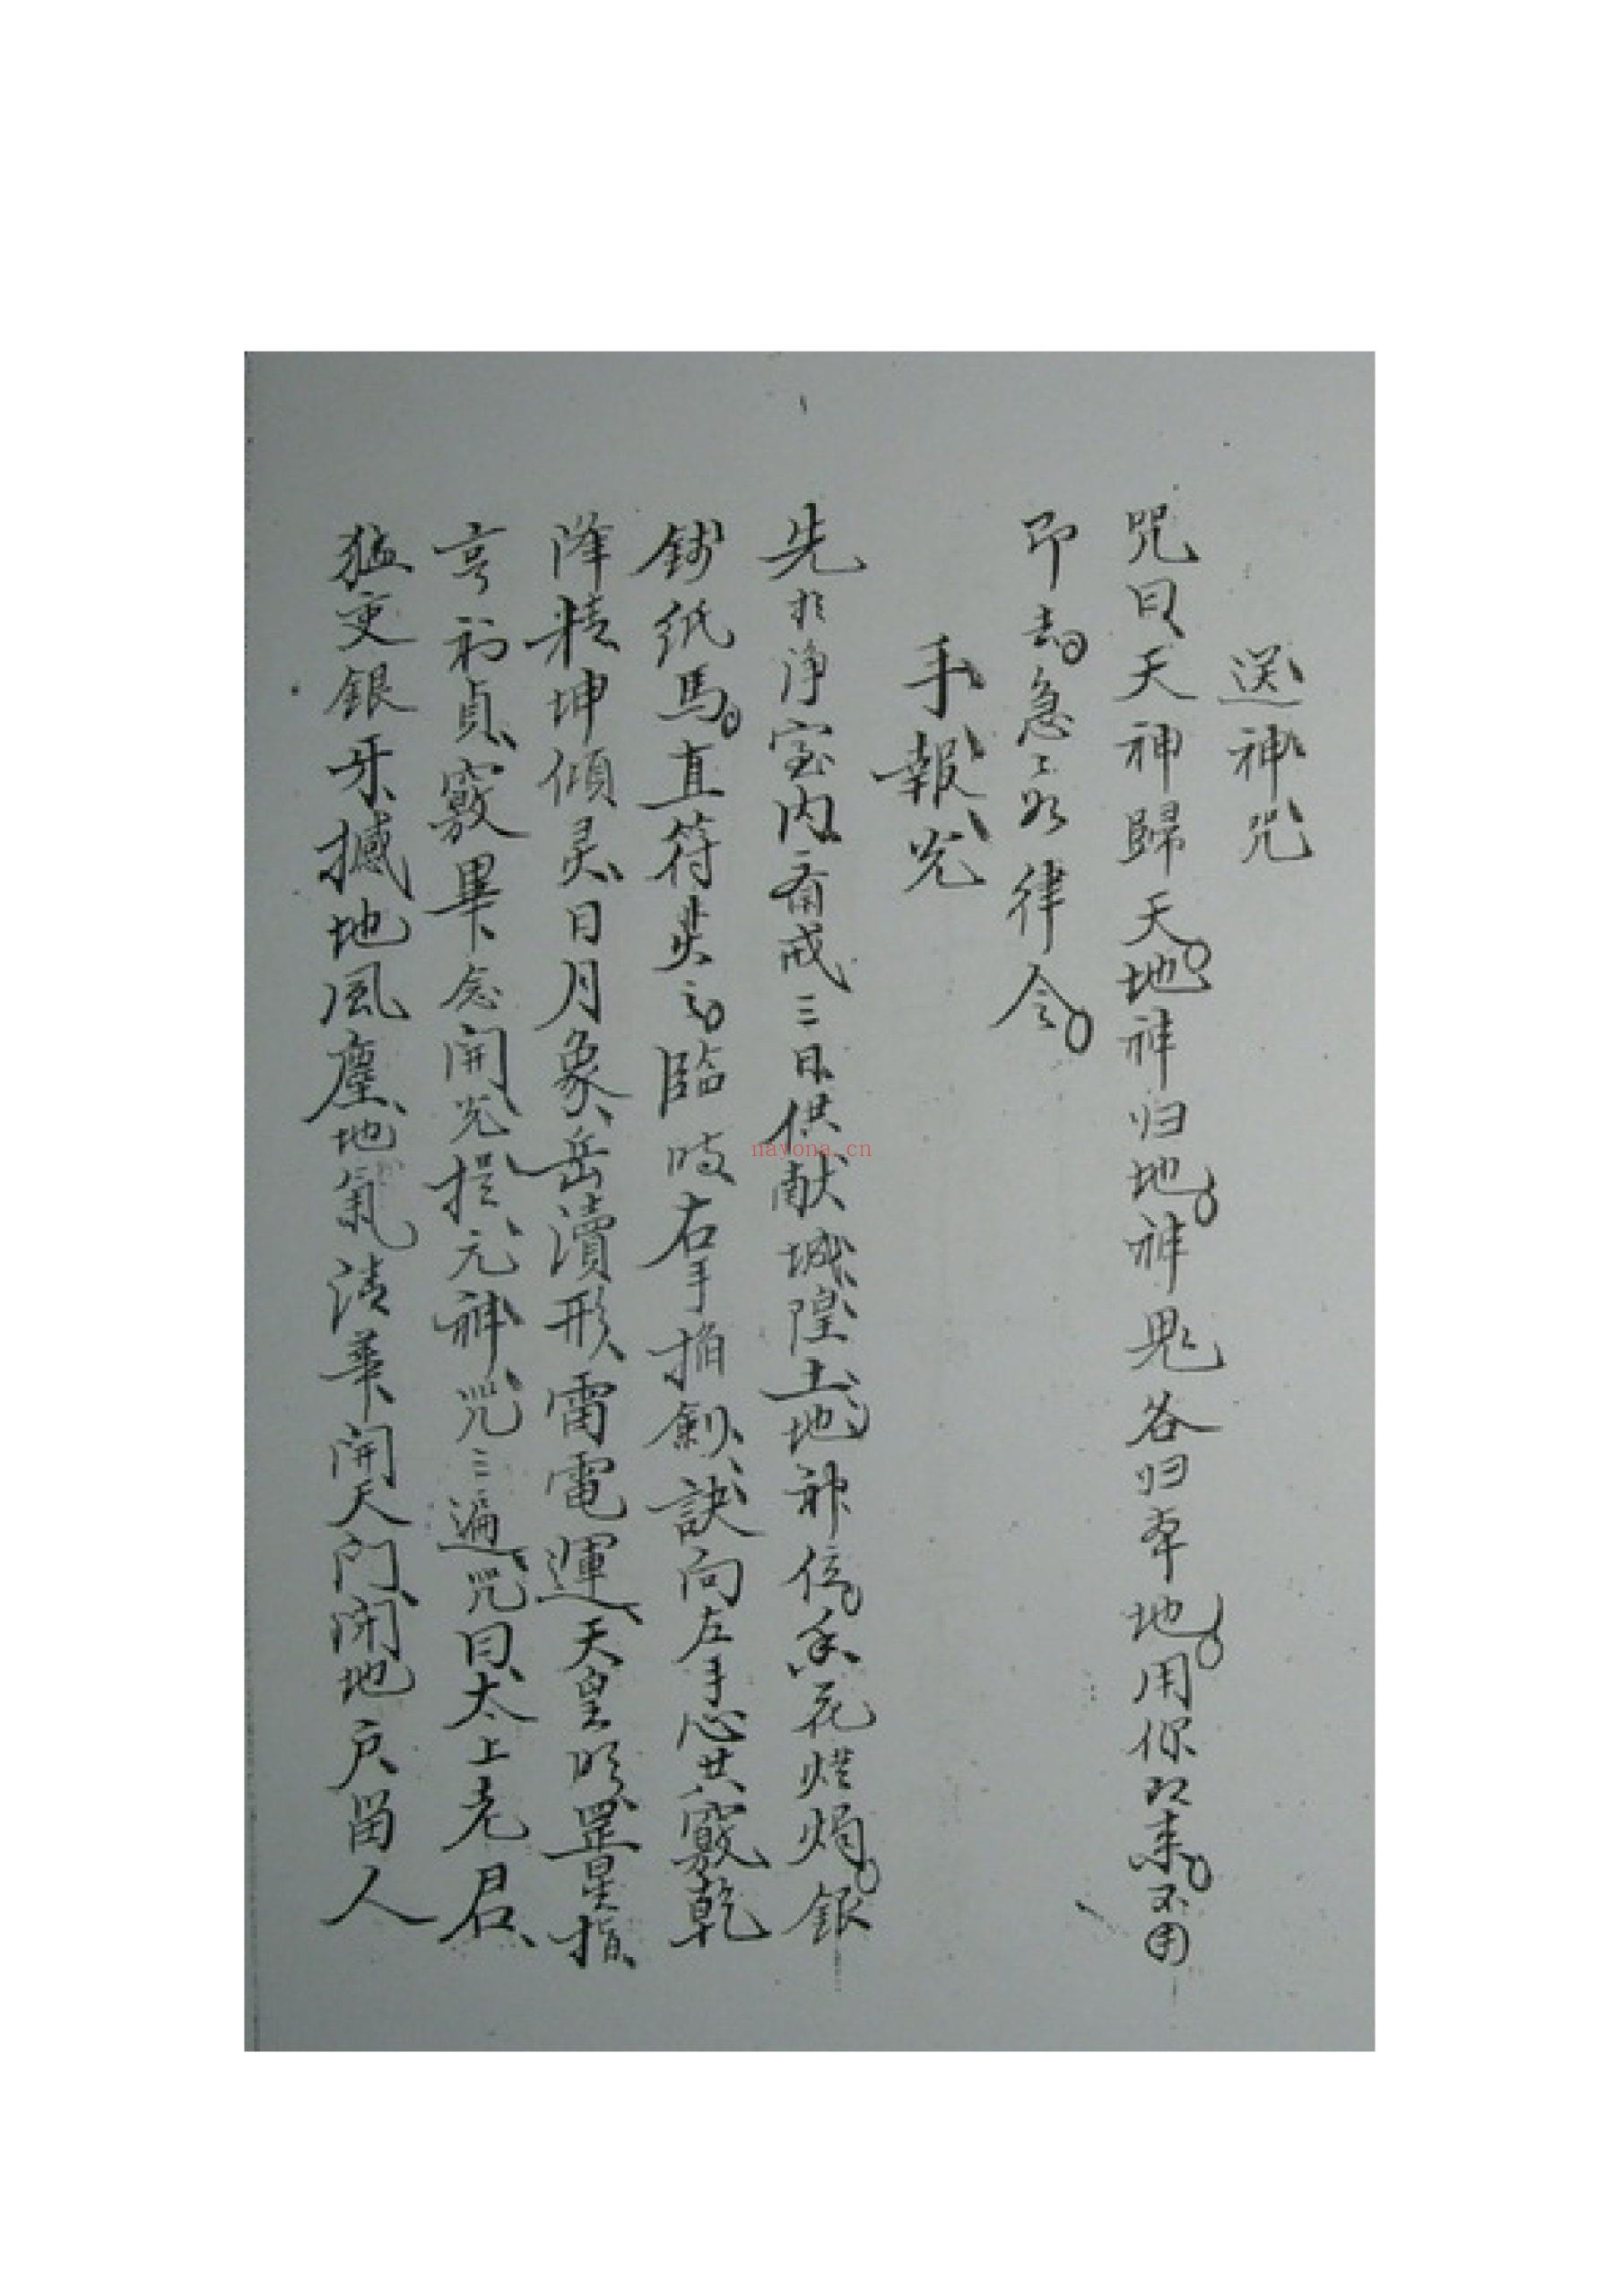 送神咒
咒曰天神歸天。地神归地。神鬼各归本地。用你即来。不用
即去。急〻如律令。
手報光
先於净室内斋戒三日供献城隍土地神位。香花灯烛。银
钱纸馬。直符焚之。臨時右手掐劍訣向左手心共竅乾
降精坤傾灵日月象岳瀆形雷電運天皇明罡星指
亨利貞竅畢念開光提元神咒三遍咒曰太上老君
猛吏銀牙撼地風塵地氣清華開天门闭地户留人
nayona.cn